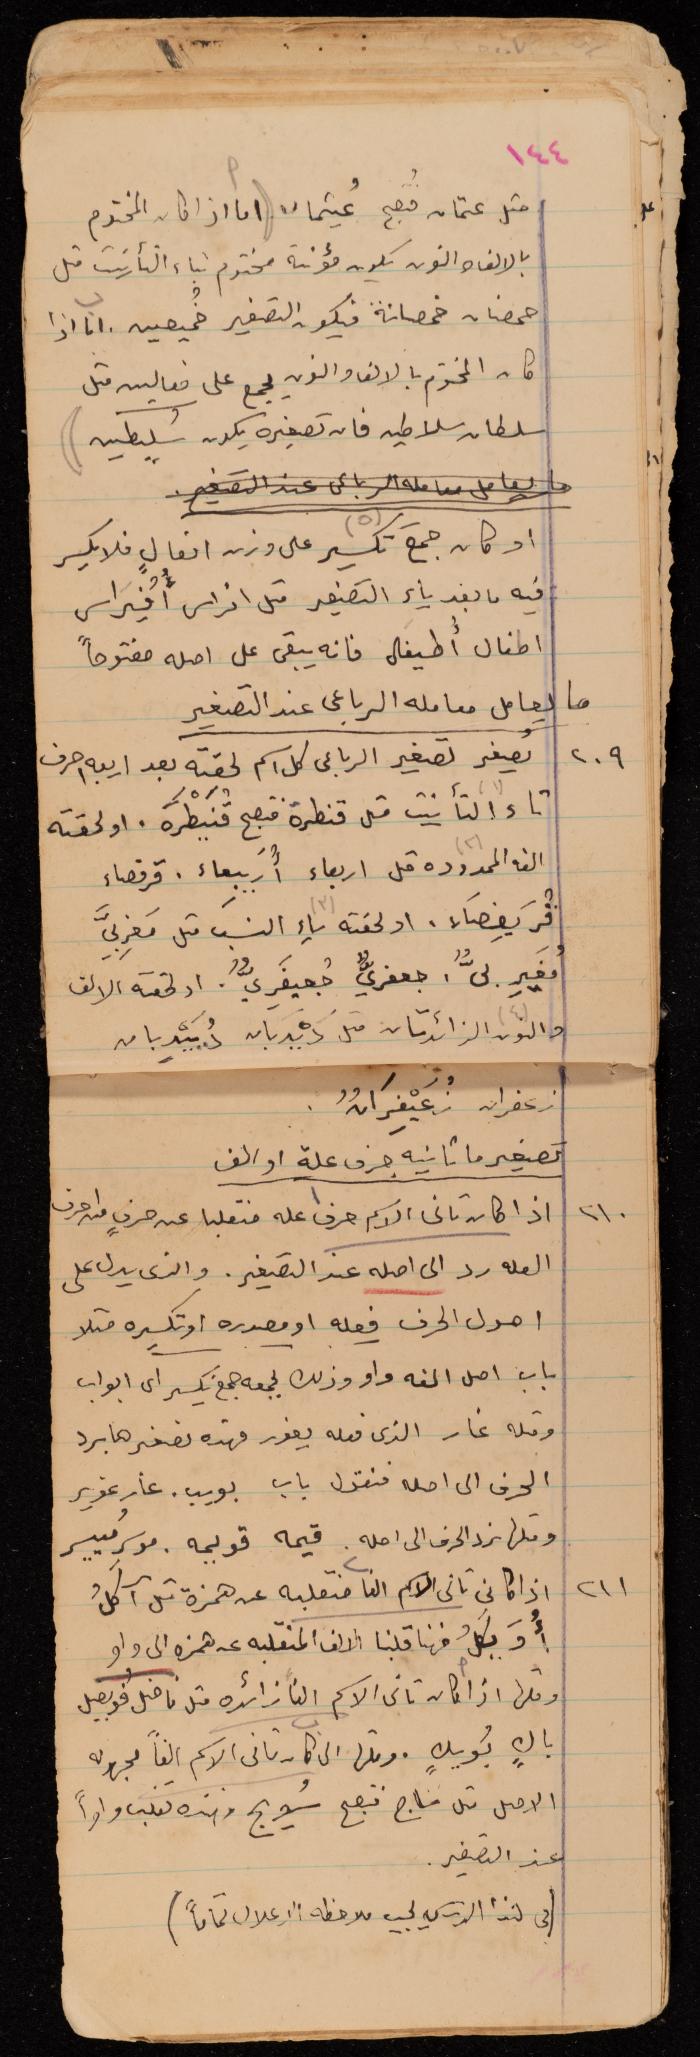 ١٤٤
مثل عثمان فتصبح عُثيمان (اما اذا كان المختوم
بالالف والنون يكون مؤنثه مختوم بتاء التأنيث مثل
خمصان خمصانة فيكون التصغير خُميصين . اما اذا
كان المختوم بالالف والنون يجمع على فعالين مثل
سلطان سلاطين فان تصغيره يكون سُليطين )
ما يعامل معامله الرباعى عند التصغير
او كان جمع تكسير (٥) على وزن افعالٍ فلا يكسر
فيه ما بعد ياء التصغير مثل افراس أُفَيْرَاس
اطفال أُطيفال فانه يبقى على اصله مفتوحاً
ما يعامل معامله الرباعى عند التصغير
٢٠٩ يصغر تصغير الرباعى كل اسم لحقته بعد اربعه احرف
تاء التأنيث (١) مثل قنطرة فتصبح قُنَيْطرَة . او لحقته
الفه الممدوده (٢) مثل اربعاء أُرَيبعاء . قرفصاء
قُرَيفِصَاء . او لحقته ياء النسب (٣) مثل مَغرِبيَّ
مُغَيرِبىٌّ ، جعفريٌّ جُعيفَرِيٌّ . او لحقته الالف
والنون (٤) الزائدتان مثل دَيْدَبان دُيَيْدِبان
زعفران زُعَيْفِرَانٌ .
تصغير ما ثانيه حرف علة او الف
٢١٠ اذا كان ثانى الاسم حرف عله منقلبا عن حرفٍ من احرف
العله رد الى اصله عند التصغير . والذى يدل على
اصول الحرف فعله او مصدره او تكسيره مثلا
باب اصل الفه واو وذلك لجمعه جمع تكسير اى ابواب
ومثله غار الذى فعله يغور فهذه تصغيرها برد
الحرف الى اصله فنقول باب بويب . غار غوير
ومثلها نرد الحرف الى اصله . قيمه قويمه . موسر مُييسر
٢١١ اذا كان ثانى الاسم الفا منقلبه عن همزة مثل آكلُ
أُوَيكلُ فهنا قلبنا الالف المنقلبه عن همزه الى واو
ومثلها اذا كان ثانى الاسم الفا زائده مثل فاضل فُويضل
باكٍ بُويكٍ . ومثلها ان كان ثانى الاسم الفاً مجهوله
الاصل مثل ساج فتصبح سُويج وهذه تقلب واواً
عند التصغير .
(فى هذا الدرس يجب ملاحظه الاعلال تماماً)